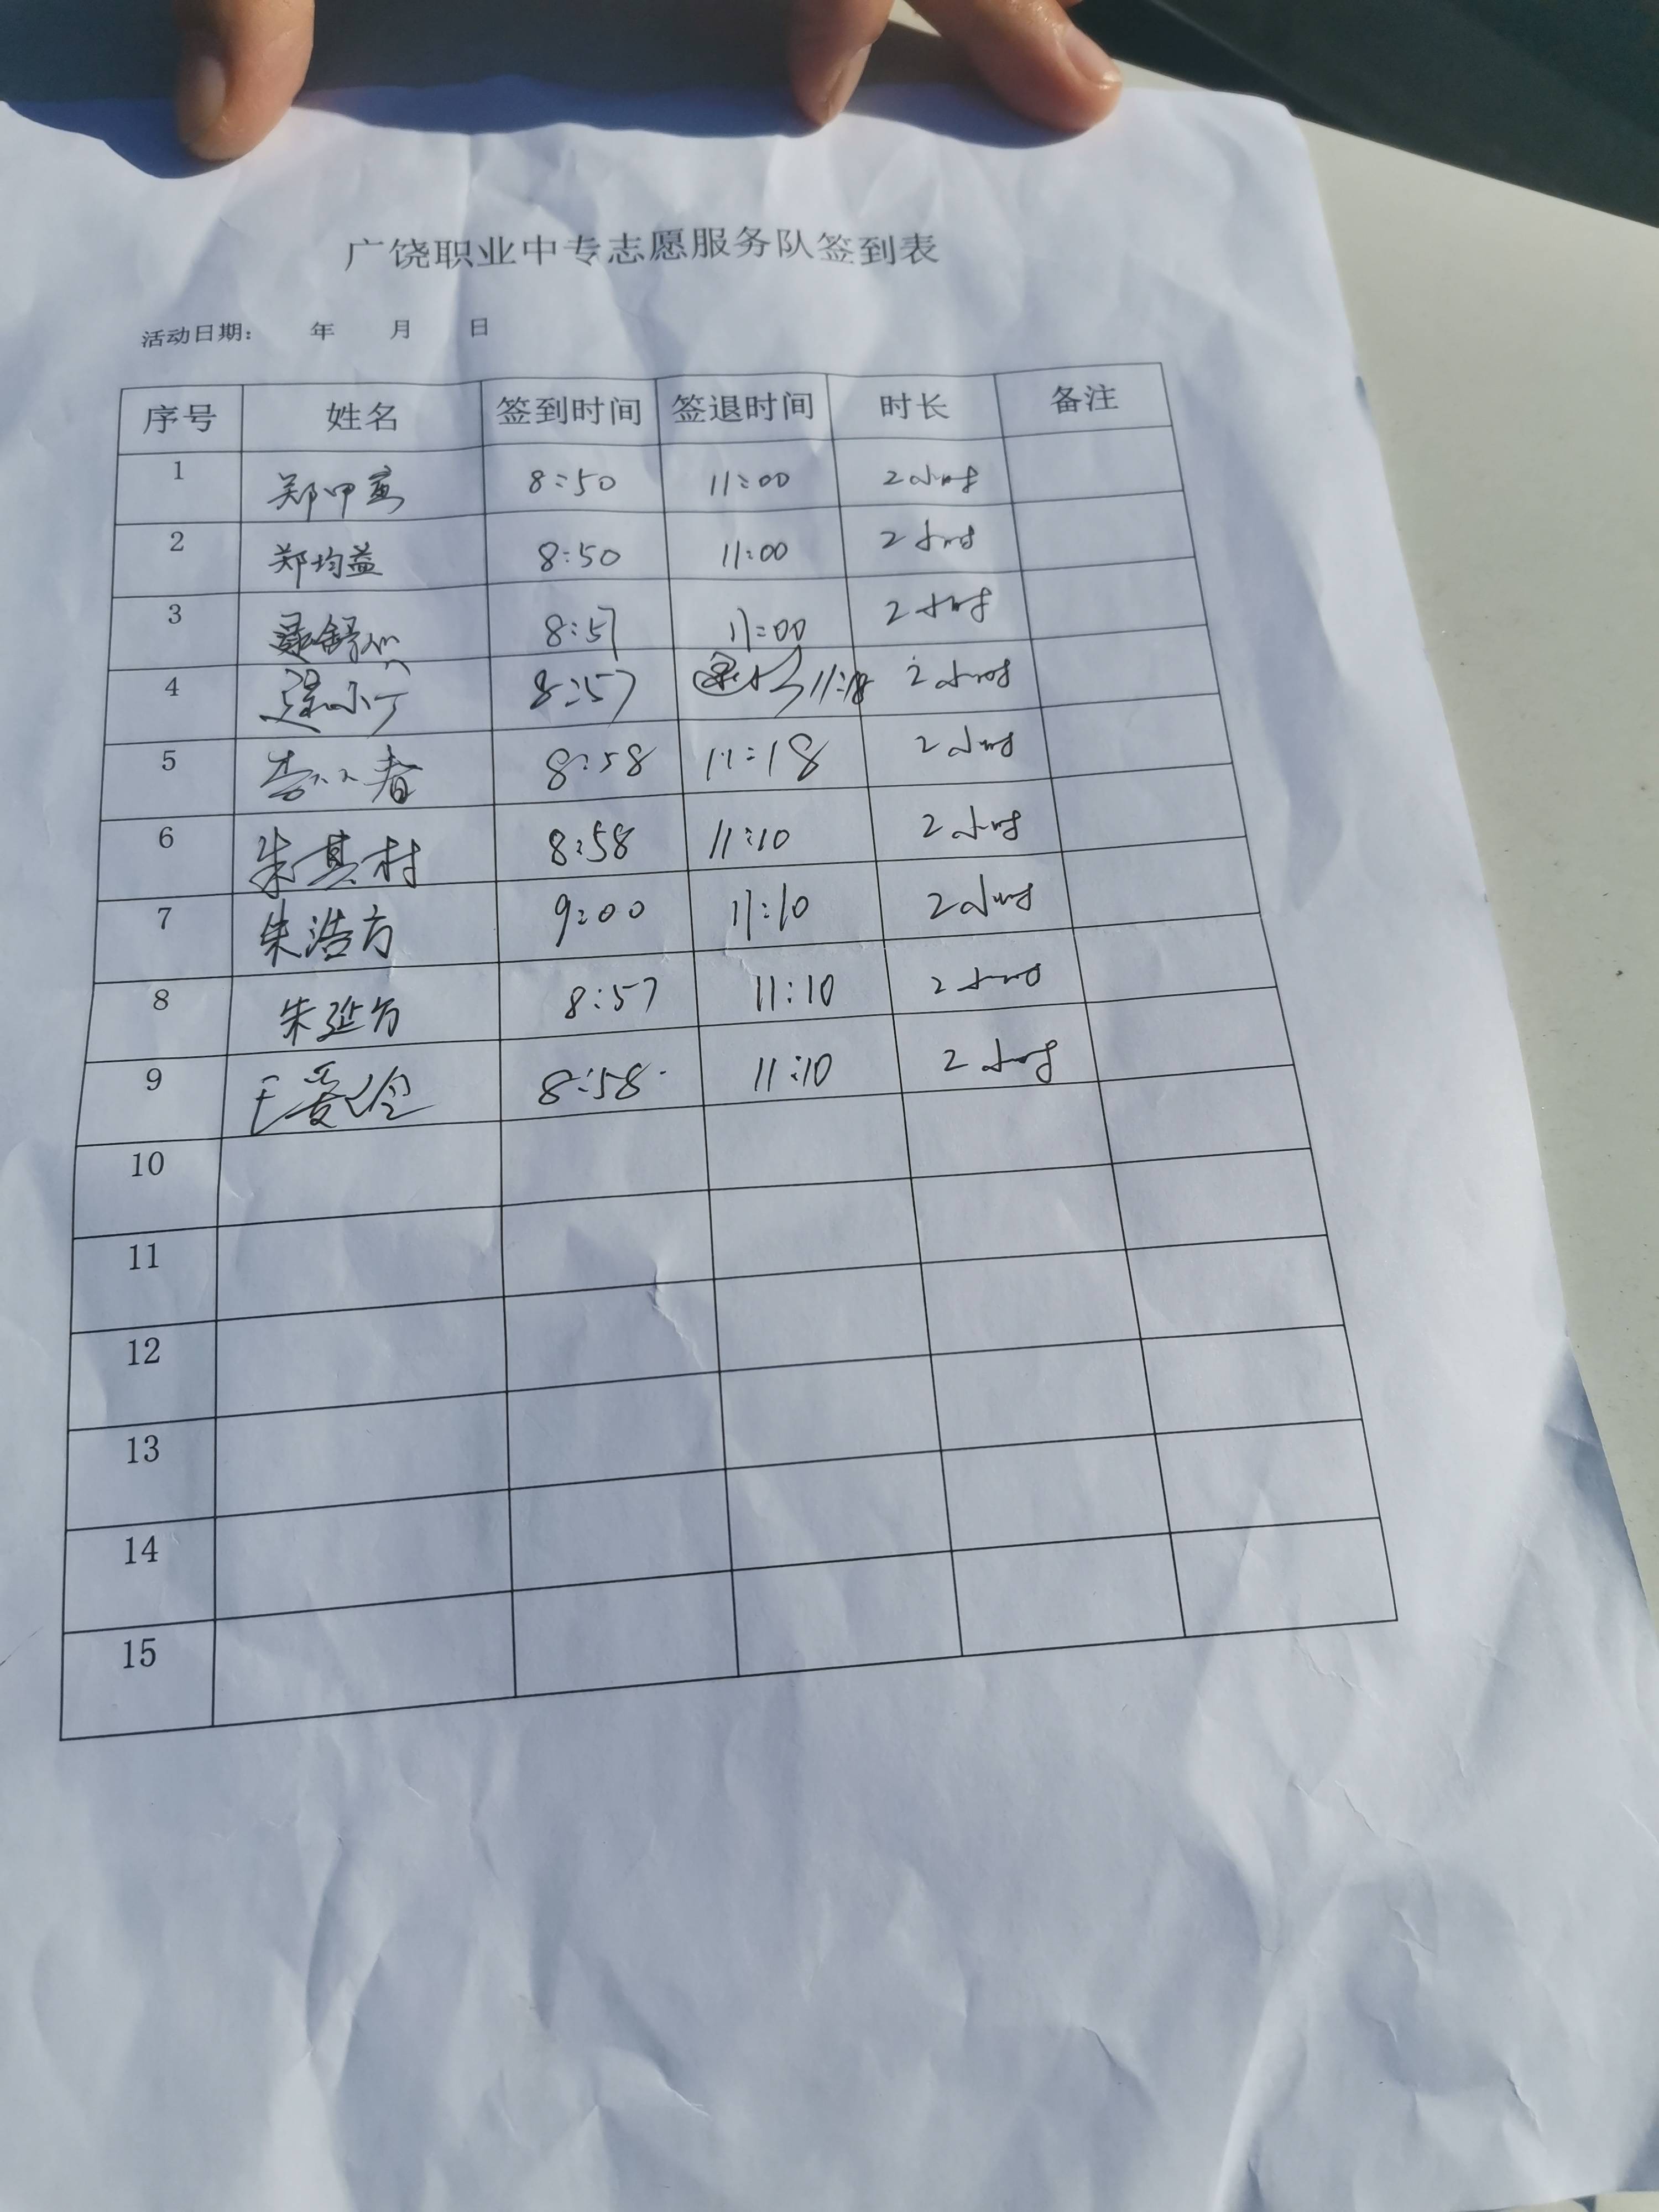 广饶职业中专志愿服务队签到表
活动日期: 年 月 日
序号 姓名 签到时间 签退时间 时长 备注
1 郑 8:50 11:00 2小时
2 郑均益 8:50 11:00 2小时
3 8:57 11:00 2小时
4 8:57 11:18 2小时
5 春 8:58 11:18 2小时
6 朱其村 8:58 11:10 2小时
7 朱浩方 9:00 11:10 2小时
8 朱延方 8:57 11:10 2小时
9 8:58 11:10 2小时
10
11
12
13
14
15